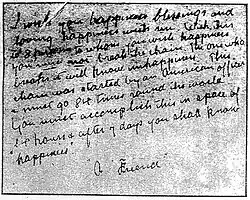 I wish you happiness blessings and
loving happiness with
to whom you wish happiness
You must not break the chain. The one who
breaks it will know unhappiness. This
chain was started by an American officer
& must go 84 times round the world.
You must accomplish this in space of
24 hours & after 9 days you shall know
"happiness"
A Friend